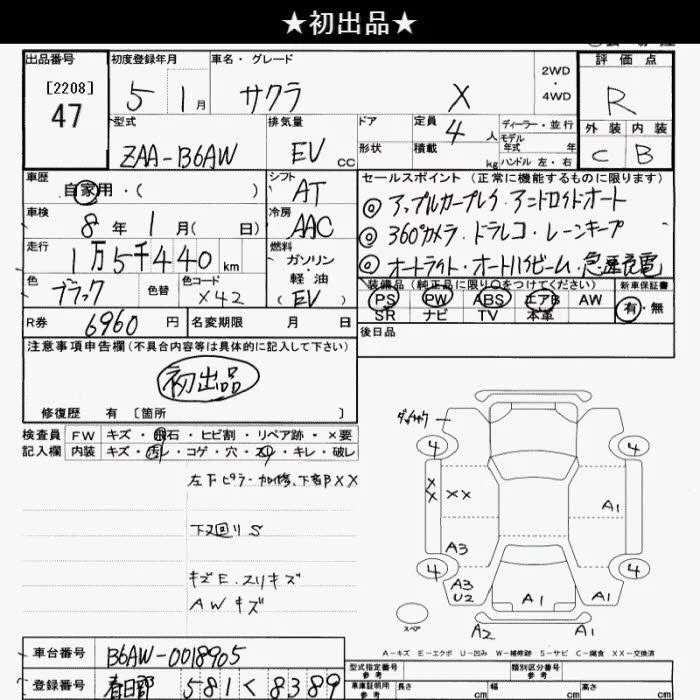 ★初出品★
出品番号 初度登録年月 車名・グレード 2WD・4WD 評価点
[2208]
47
5 1月 サクラ X R
型式 排気量 ドア 定員 ディーラー・並行 外装 内装
ZAA-B6AW EV CC 4人 モデル年式 年 C B
形状 積載 kg ハンドル 左・右
車歴 シフト セールスポイント (正常に機能するものに限ります)
自家用・( ) AT ◎アップルカープレイ・アンドロイドオート
車検 冷房
8年 1月( 日) AAC ◎360°カメラ・ドラレコ・レーンキープ
走行 燃料
1万5千440km ガソリン・軽油 ◎オートライト・オートハイビーム・急速充電
色 色替 色コード (EV)
ブラック X42
装備品(純正品に限り○をつけてください) 新車保証書
PS PW ABS エアB AW 有・無
SR ナビ TV 本革
R券 6960円 名変期限 月 日 後日品
注意事項申告欄(不具合内容等は具体的に記入して下さい)
初出品
修復歴 有 [箇所 ]
検査員 FW キズ・飛石・ヒビ割・リペア跡・×要
記入欄 内装 キズ・汚レ・コゲ・穴・スレ・キレ・破レ
左下ピラー加修、下部XX
下廻りS
キズE、スリキズ
AWキズ
4 4
XX XX A1
A3
4 4
A3 U2 A1 A1
スペア A2 A1
A-キズ E-エクボ U-凹み W-補修跡 S-サビ C-腐食 XX-交換済
車台番号 B6AW-0018905 型式指定番号 参考 類別区分番号 参考
登録番号 春日部 581く8389 車庫証明用 参考 長さ cm 幅 cm 高さ cm